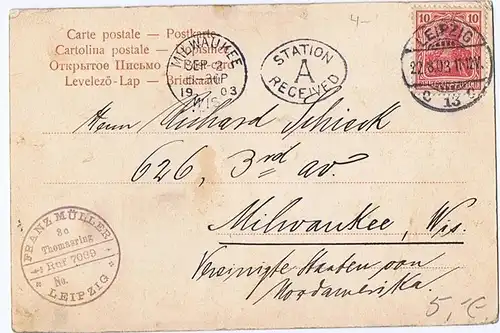 4-
Carte postale — Postkarte
Cartolina postale
Открытое Письмо
Levelező-Lap — Briefkaart
MILWAUKEE
SEP 2
19 03
WIS.
STATION
A
RECEIVED
10 10
LEIPZIG
13
Herrn Richard Schieck
626, 3rd av.
Milwaukee, Wis.
Vereinigte Staaten von
Nordamerika.
FRANZ MÜLLER
8a
Thomasring
Ruf 7099
No.
LEIPZIG
5,-